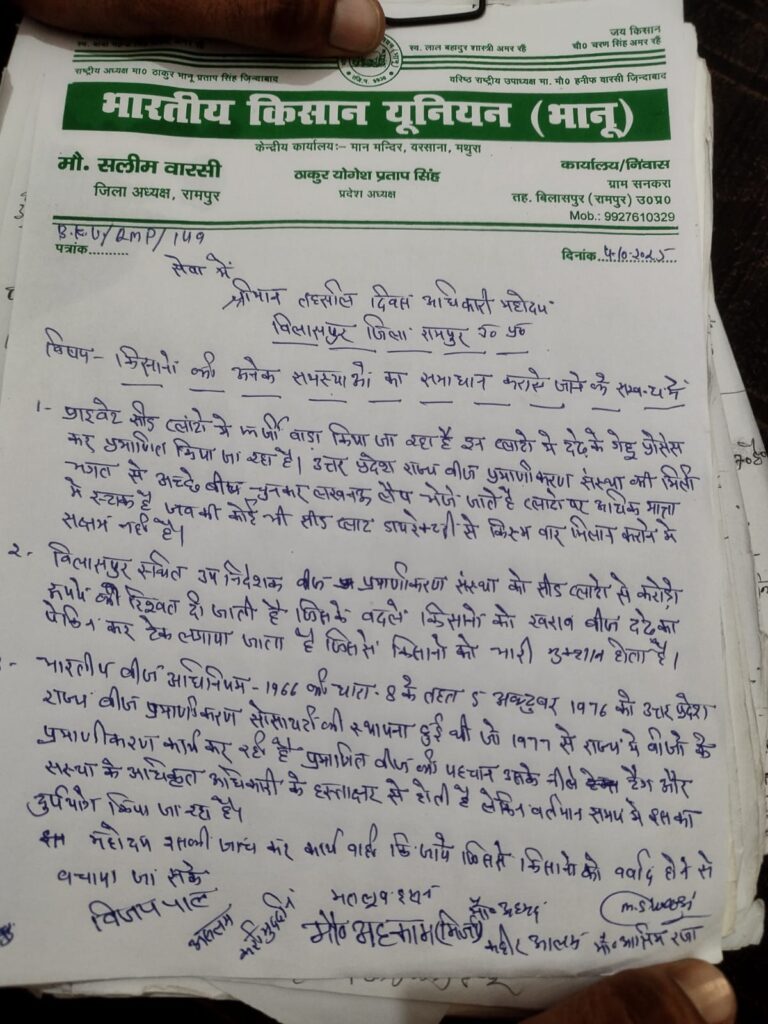 स्व. लाल बहादुर शास्त्री अमर रहें
जय किसान
चौ० चरण सिंह अमर रहें
राष्ट्रीय अध्यक्ष मा० ठाकुर भानू प्रताप सिंह जिन्दाबाद
वरिष्ठ राष्ट्रीय उपाध्यक्ष मा. मौ० हनीफ वारसी जिन्दाबाद
भारतीय किसान यूनियन (भानू)
केन्द्रीय कार्यालयः- मान मन्दिर, वरसाना, मथुरा
मौ. सलीम वारसी
जिला अध्यक्ष, रामपुर
ठाकुर योगेश प्रताप सिंह
प्रदेश अध्यक्ष
कार्यालय/निवास
ग्राम सनकरा
तह. बिलासपुर (रामपुर) उ०प्र०
Mob.: 9927610329
B.K.U/RMP/149
पत्रांक..........
दिनांक. 4-10-2025
सेवा में
श्रीमान तहसील दिवस अधिकारी महोदय
विलासपुर जिला रामपुर उ० प्र०
विषय- किसानों की अनेक समस्याओं का समाधान कराये जाने के सम्बन्ध में
1- प्राइवेट सीड प्लांटो में फर्जी वाडा किया जा रहा है इन प्लांटो में ददेके गेहू प्रोसेस
कर प्रमाणित किया जा रहा है। उत्तर प्रदेश राज्य बीज प्रमाणीकरण संस्था की मिली
भगत से अच्छे बीघ चुनकर लखनऊ लैव भेजे जाते है प्लांटो पर अधिक मात्रा
में स्टाक है जब की कोई भी सीड प्लांट डायरेक्ट्री से किस्म वार मिलान कराने में
सक्षम नहीं है।
2- विलासपुर स्थित उप निदेशक बीज प्रमाणीकरण संस्था को सीड प्लांटो से करोड़ो
रूपये की रिश्वत दी जाती है जिसके बदले किसानो को खराब बीज ददेका
पेकिंग कर टेक लगाया जाता है जिससे किसानो को भारी नुकशान होता है।
- भारतीय बीज अधिनियम-1966 की धारा-8 के तहत 5 अक्टुवर 1976 को उत्तर प्रदेश
राज्य बीज प्रमाणीकरण सोसायटी की स्थापना हुई थी जो 1977 से राज्य में बीजो के
प्रमाणीकरण कार्य कर रही है प्रमाणित बीज की पहचान उसके नीले टैग और
संस्था के अधिकृत अधिकारी के हस्ताक्षर से होती है लेकिन वर्तमान समय में इसका
दुर्पयोग किया जा रहा है।
महोदय इसकी जांच कर कार्य वाही कि जाये जिससे किसानो को वर्वाद होने से
बचाया जा सके
विजयपाल
मौ० अहकाम
मौ० आसिम रजा